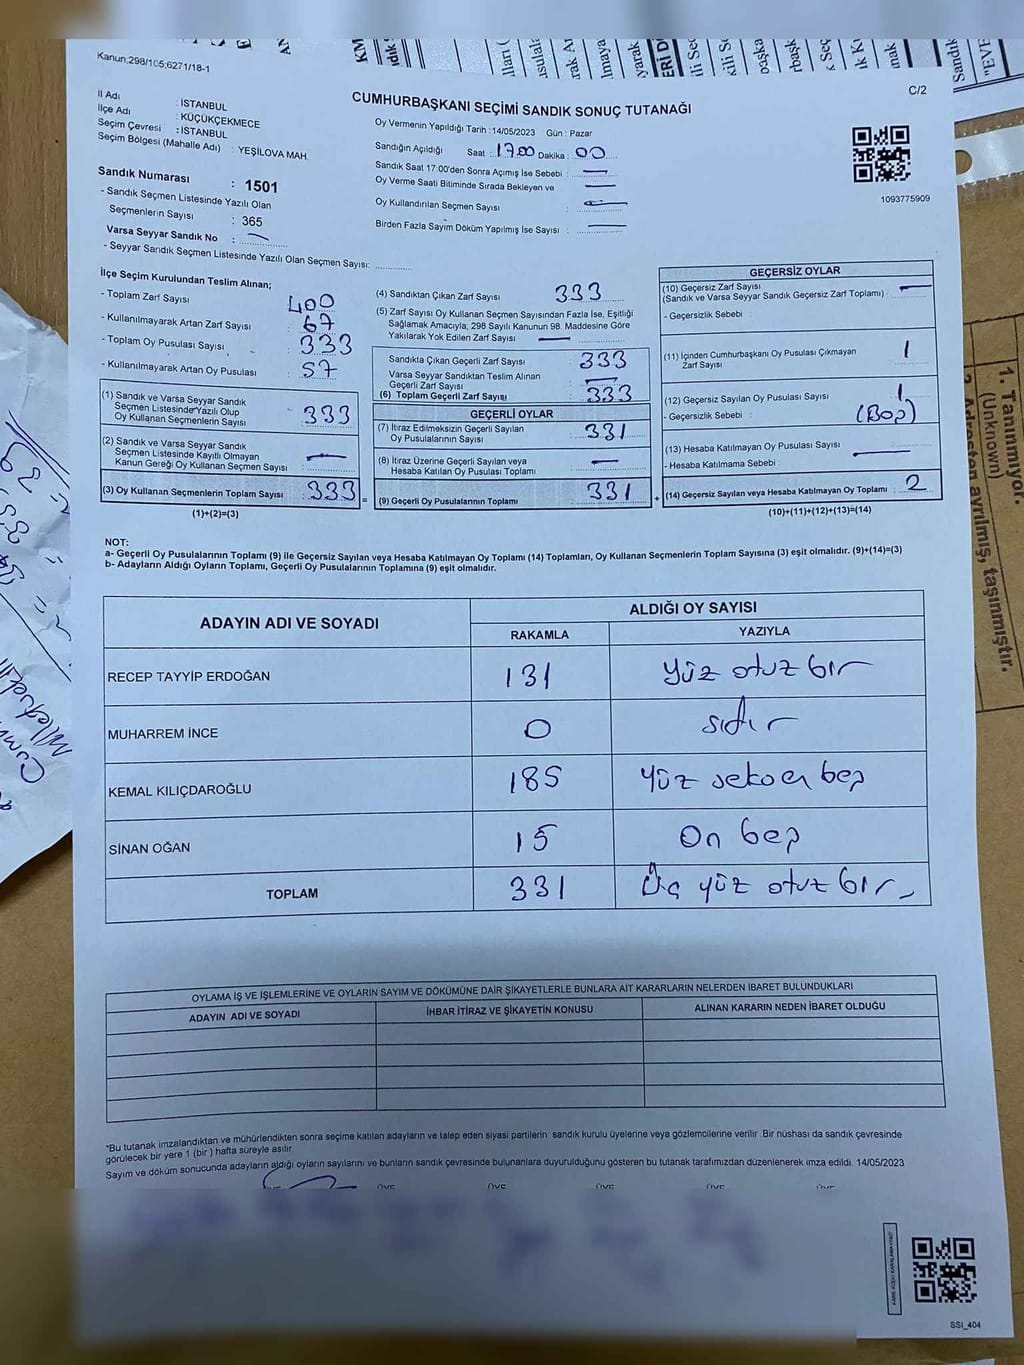 Kanun;298/105;6271/18-1
C/2
CUMHURBAŞKANI SEÇİMİ SANDIK SONUÇ TUTANAĞI
İl Adı : İSTANBUL
İlçe Adı : KÜÇÜKÇEKMECE
Seçim Çevresi : İSTANBUL
Seçim Bölgesi (Mahalle Adı) : YEŞİLOVA MAH.
Sandık Numarası : 1501
- Sandık Seçmen Listesinde Yazılı Olan
Seçmenlerin Sayısı : 365
Varsa Seyyar Sandık No : —
- Seyyar Sandık Seçmen Listesinde Yazılı Olan Seçmen Sayısı: ..............
Oy Vermenin Yapıldığı Tarih :14/05/2023 Gün : Pazar
Sandığın Açıldığı Saat : 17.00 Dakika : 00
Sandık Saat 17:00'den Sonra Açımış İse Sebebi : —
Oy Verme Saati Bitiminde Sırada Bekleyen ve —
Oy Kullandırılan Seçmen Sayısı : —
Birden Fazla Sayım Döküm Yapılmış İse Sayısı : —
1093775909
İlçe Seçim Kurulundan Teslim Alınan;
- Toplam Zarf Sayısı : 400
- Kullanılmayarak Artan Zarf Sayısı : 67
- Toplam Oy Pusulası Sayısı : 333
- Kullanılmayarak Artan Oy Pusulası : 57
(1) Sandık ve Varsa Seyyar Sandık
Seçmen Listesinde Yazılı Olup
Oy Kullanan Seçmenlerin Sayısı : 333
(2) Sandık ve Varsa Seyyar Sandık
Seçmen Listesinde Kayıtlı Olmayan
Kanun Gereği Oy Kullanan Seçmen Sayısı : —
(3) Oy Kullanan Seçmenlerin Toplam Sayısı : 333 =
(1)+(2)=(3)
(4) Sandıktan Çıkan Zarf Sayısı 333
(5) Zarf Sayısı Oy Kullanan Seçmen Sayısından Fazla İse, Eşitliği
Sağlamak Amacıyla; 298 Sayılı Kanunun 98. Maddesine Göre
Yakılarak Yok Edilen Zarf Sayısı —
Sandıkta Çıkan Geçerli Zarf Sayısı : 333
Varsa Seyyar Sandıktan Teslim Alınan
Geçerli Zarf Sayısı : —
(6) Toplam Geçerli Zarf Sayısı : 333
GEÇERLİ OYLAR
(7) İtiraz Edilmeksizin Geçerli Sayılan
Oy Pusulalarının Sayısı : 331
(8) İtiraz Üzerine Geçerli Sayılan veya
Hesaba Katılan Oy Pusulası Toplamı : —
(9) Geçerli Oy Pusulalarının Toplamı : 331 +
GEÇERSİZ OYLAR
(10) Geçersiz Zarf Sayısı
(Sandık ve Varsa Seyyar Sandık Geçersiz Zarf Toplamı) : —
- Geçersizlik Sebebi :
(11) İçinden Cumhurbaşkanı Oy Pusulası Çıkmayan
Zarf Sayısı : 1
(12) Geçersiz Sayılan Oy Pusulası Sayısı : 1
- Geçersizlik Sebebi : (Boş)
(13) Hesaba Katılmayan Oy Pusulası Sayısı : —
- Hesaba Katılmama Sebebi :
(14) Geçersiz Sayılan veya Hesaba Katılmayan Oy Toplamı : 2
(10)+(11)+(12)+(13)=(14)
NOT:
a- Geçerli Oy Pusulalarının Toplamı (9) ile Geçersiz Sayılan veya Hesaba Katılmayan Oy Toplamı (14) Toplamları, Oy Kullanan Seçmenlerin Toplam Sayısına (3) eşit olmalıdır. (9)+(14)=(3)
b- Adayların Aldığı Oyların Toplamı, Geçerli Oy Pusulalarının Toplamına (9) eşit olmalıdır.
ADAYIN ADI VE SOYADI
ALDIĞI OY SAYISI
RAKAMLA YAZIYLA
RECEP TAYYİP ERDOĞAN 131 Yüz otuz bir
MUHARREM İNCE 0 sıfır
KEMAL KILIÇDAROĞLU 185 Yüz seksen beş
SİNAN OĞAN 15 On beş
TOPLAM 331 Üç yüz otuz bir
OYLAMA İŞ VE İŞLEMLERİNE VE OYLARIN SAYIM VE DÖKÜMÜNE DAİR ŞİKAYETLERLE BUNLARA AİT KARARLARIN NELERDEN İBARET BULUNDUKLARI
ADAYIN ADI VE SOYADI İHBAR İTİRAZ VE ŞİKAYETİN KONUSU ALINAN KARARIN NEDEN İBARET OLDUĞU
*Bu tutanak imzalandıktan ve mühürlendikten sonra seçime katılan adayların ve talep eden siyasi partilerin sandık kurulu üyelerine veya gözlemcilerine verilir .Bir nüshası da sandık çevresinde
görülecek bir yere 1 (bir ) hafta süreyle asılır.
Sayım ve döküm sonucunda adayların aldığı oyların sayılarını ve bunların sandık çevresinde bulunanlara duyurulduğunu gösteren bu tutanak tarafımızdan düzenlenerek imza edildi. 14/05/2023
ÜYE ÜYE ÜYE ÜYE ÜYE
SSI_404
1. Tanınmıyor.
(Unknown)
2. Adresten ayrılmış, taşınmıştır.
Sandık
"EVE